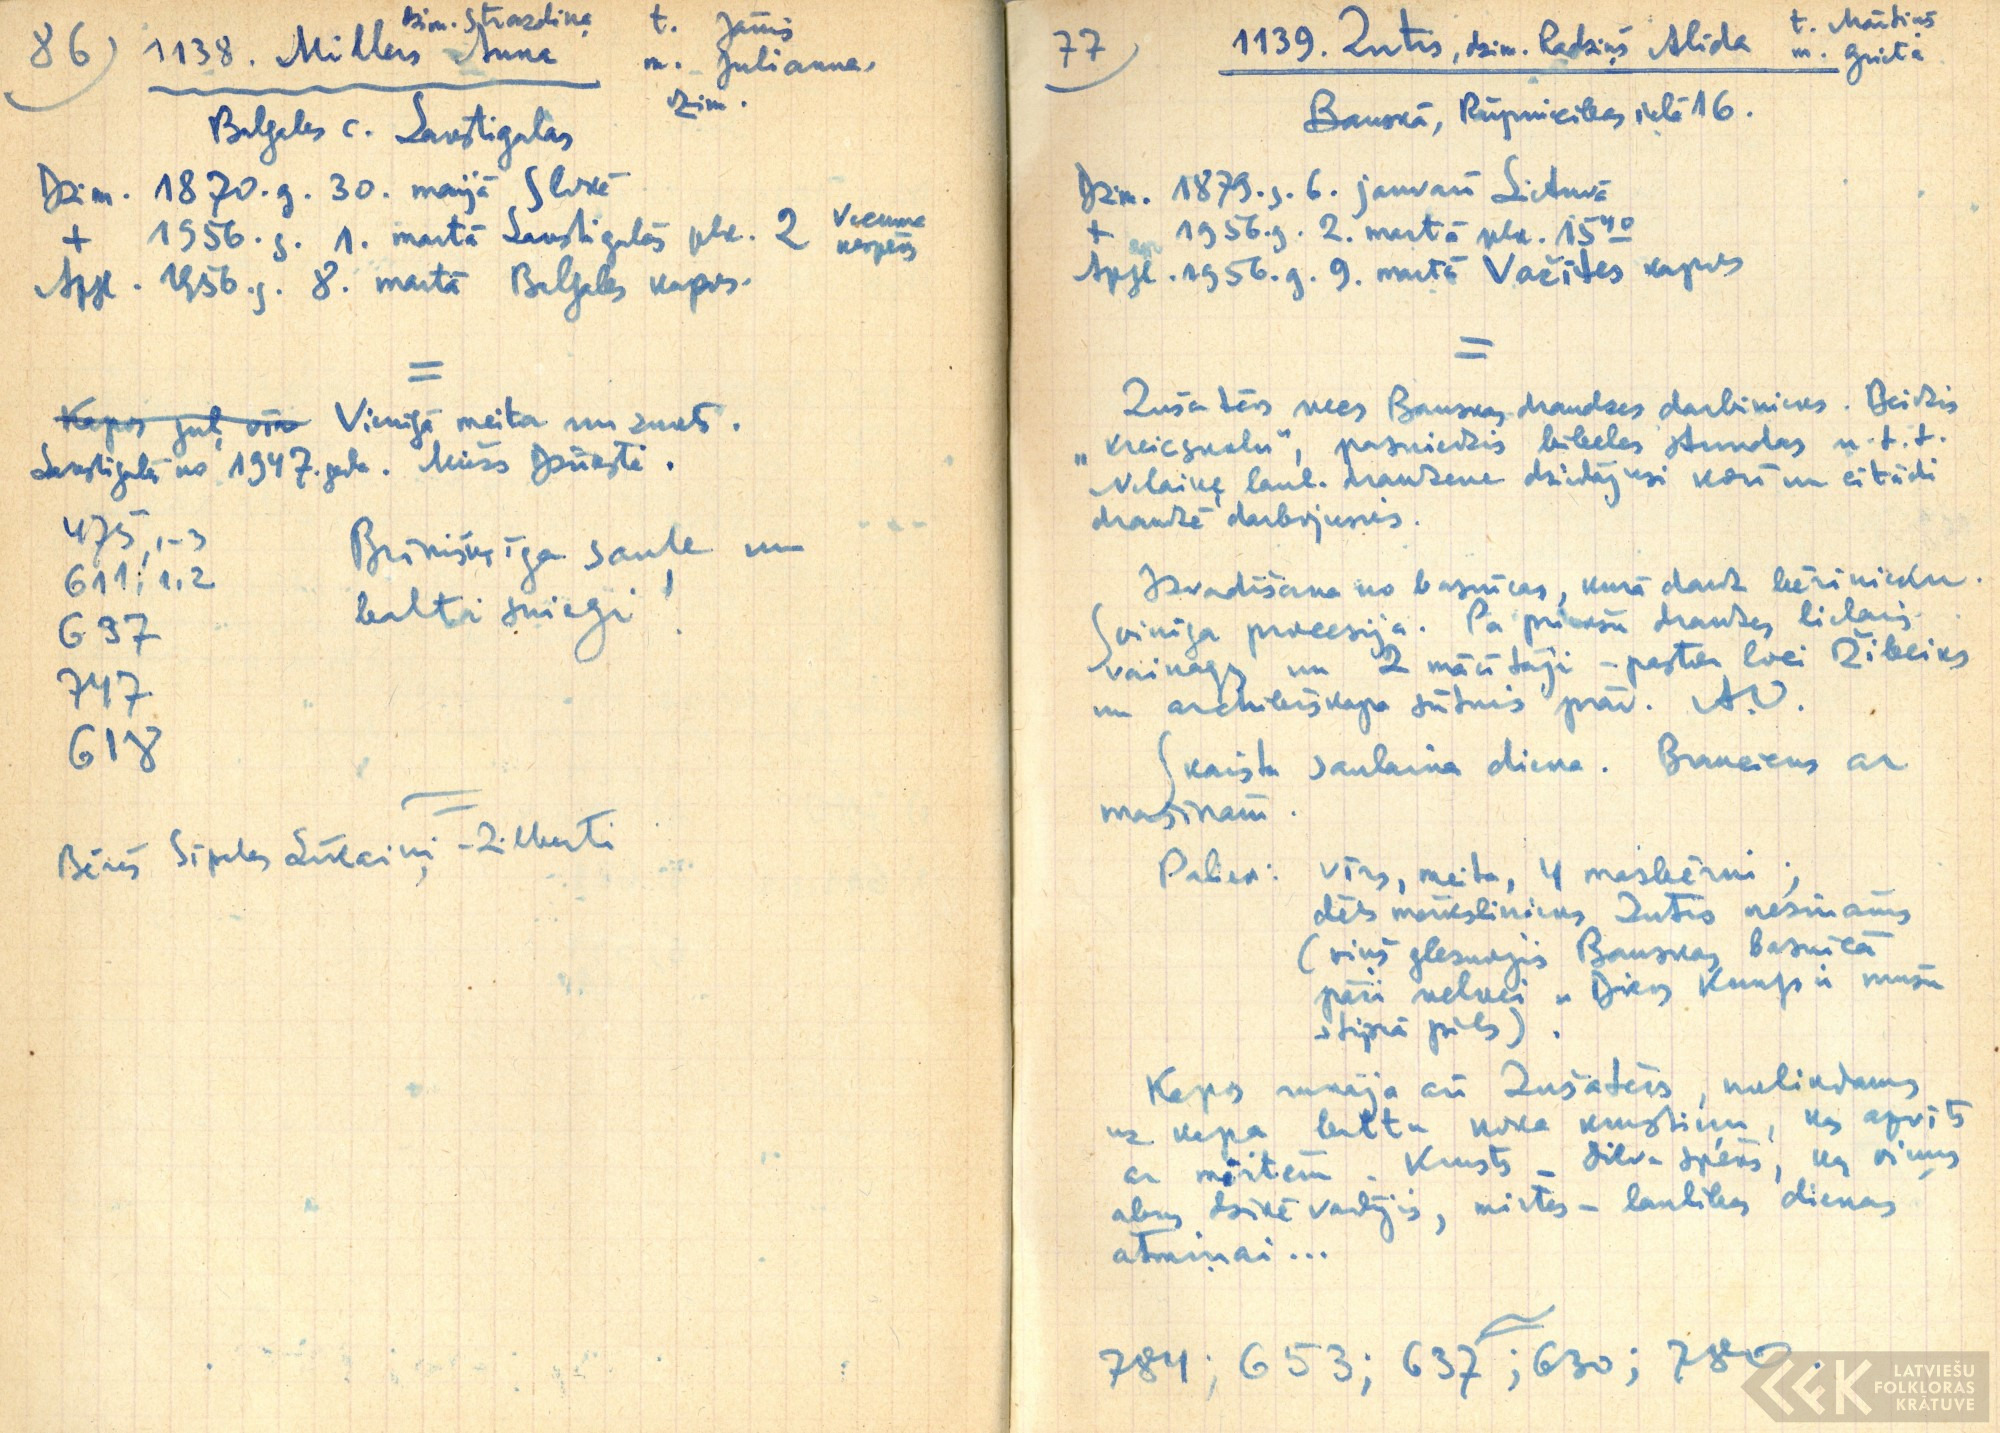 86)
dzim. Strazdiņa
1138. Millers Anna
t. Jānis
m. Julianna,
dzim.
Balgales c. Lakstīgalas
Dzim. 1870.g. 30. maijā Slokē
+ 1956.g. 1. martā Lakstīgalās plk. 2 Vecuma nespēks
Apgl. 1956.g. 8. martā Balgales kapos.
=
Kapos guļ vīrs Vienīgā meita un znots.
Lakstīgalās no 1947. gada. Mūžs Džūkstē.
475, 1-3
611; 1,2
637
747
618
Brīnišķīga saule un
balti sniegi!
Bērēs Sīpeles Lūkaiņi - Zilberti
77)
1139. Zutis, dzim. Radziņš Alīda
t. Mārtiņš
m. Grietā
Bauskā, Rūpniecības ielā 16.
Dzim. 1879.g. 6. janvarī Lietuvā
+ 1956.g. 2. martā plk. 15⁴⁰
Apgl. 1956.g. 9. martā Vačītes kapos
=
Zuša tēvs vecs Bauskas draudzes darbinieks. Beidzis
"kreicskolu", pasniedzis bībeles stundas u.t.t.
Nelaiķe laul. draudzene dziedājusi korī un citādi
draudzē darbojusies.
Izvadīšana no baznīcas, kurā daudz bērinieku.
Svinīga procesija. Pa priekšu draudzes lielais
vainags un 2 mācītāji - pastor loci Žibeiks
un archibīskapa sūtnis prāv. A.V.
Skaista saulaina diena. Brauciens ar
mašīnām.
Paliek: vīrs, meita, 4 mazbērni;
dēls mākslinieks Zutis nezināms
(viņš gleznojis Bauskas baznīcā
pāri velvei "Dievs Kungs ir mūsu
stiprā pils).
Kapos runāja arī Zuša tēvs, nolikdams
uz kapa baltu koka krustiņu, kas apvīts
ar mirtēm. Krusts - Dieva spēks, kas viņus
abus dzīvē vadījis, mirtes - laulības dienas
atmiņai...
784; 653; 637; 630; 780.
LATVIEŠU
FOLKLORAS
KRĀTUVE